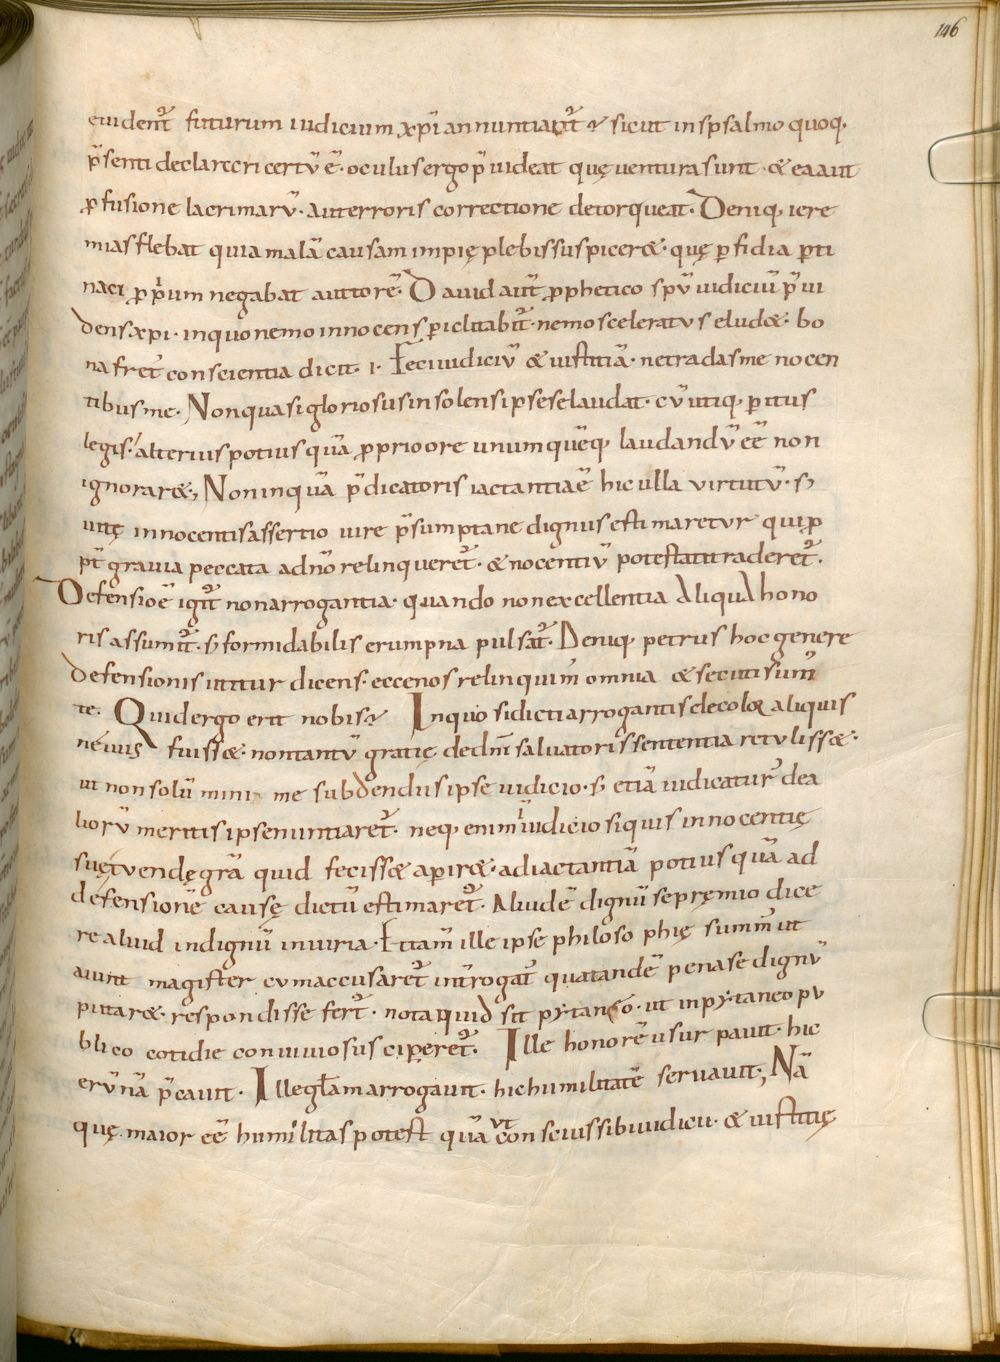 146
euidenť futurum iudicium xp̄i annuntiauť & sicut inspsalmo quoq;
p̄senti declareri certū ē· oculusergo p̄uideat quę uentura sunt· & ea aut
ꝓfusione lacrimarū· aut erroris correctione detorqueat· Deniq; iere
mias flebat quia malā causam impię plebis suspiceret· quę ꝑfidia ꝑti
naci ꝓprium negabat auctorē· Dauid aūt ꝓphetico spū iudiciū p̄ui
dens xp̄i· inquo nemo innocens ꝑiclitabiť· nemo sceleratus eludet· bo
na freť conscientia dicit· Feci iudiciū & iustitiā· ne tradas me nocen
tibus me· Non quasi gloriosus insolens ipse se laudat· cū utiq; ꝑitus
legis· alterius potius quā ꝓprio ore unumquēq; laudandū eē non
ignoraret; Non inquā p̄dicatoris iactantiaē hic ulla virtutū· s;
uitę innocentis assertio iure p̄sumpta ne dignus estimaretur qui ꝓ
pt̄ grauia peccata adn̄o relinquereť· & nocentiū potestati tradereť·
Defensioē igiť non arrogantia· quando non excellentia aliqua hono
ris assumiť· s; formidabilis erumpna pulsať· Deniq; petrus hoc genere
defensionis utitur dicens· ecce nos relinquim̄ omnia & secuti sum̄
te· Quid ergo erit nobis· In quo si dicti arrogantis decolor aliquis
neuus fuisset· non tantū gratię dedn̄i saluatoris sententia retulisset·
ut non solū mini me subdendus ipse iudicio· s; etiā iudicatur; dea
liorū meritis ipse nuntiareť· neq; enim ĩ iudicio siquis innocentię
suę tuendę gr̄a quid fecisset aperiret· adiactantiā potius quā ad
defensionē causę dictū estimareť· Aliud ē dignū se pręmio dice
re aliud indignū iniuria· Etiam ille ipse philosophię summ̄ ut
aiunt magister cum accusareť int̄rogať quatandē pena se dignū
putaret· respondisse ferť· nota quid sit pytaneo· ut in pytaneo pu
blico cotidie conuiuio susciꝑereť· Ille honorē usurpauit· hic
erūnā p̄cauit· Ille gl̄am arrogauit· hic humilitatē seruauit; Nā
quę maior eē humilitas potest quā ut conscius sibi iudicii· & iustitię